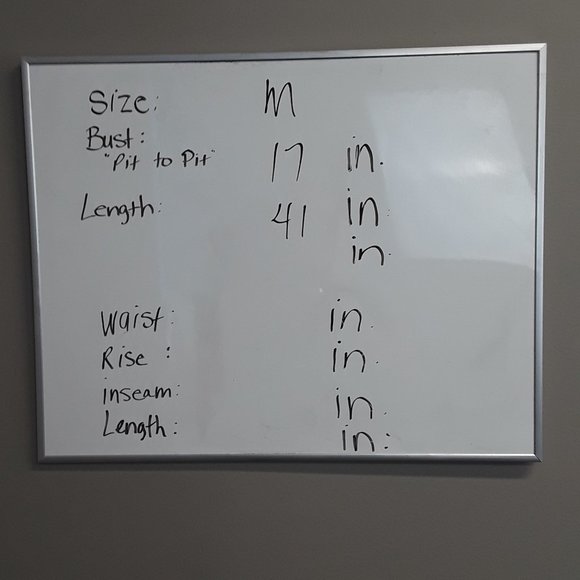 Size: M
Bust:
"Pit to Pit" 17 in.
Length: 41 in.
in.
Waist: in.
Rise: in.
inseam: in.
Length: in: